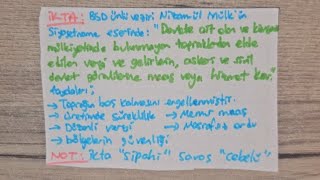 İKTA: BSD ünlü veziri Nizamül Mülk'ün
Siyasetname eserinde: "Devlete ait olan ve karşıya
mülkiyetinde bulunmayan topraklardan elde
edilen vergi ve gelirlerin, askeri ve sivil
devlet görevlilerine maaş veya hizmet kar.
faydaları;
→ Toprağın boş kalmasını engellenmiştir.
→ üretimde süreklilik → Memur maaş
→ Düzenli vergi → Masrafsız ordu
→ bölgelerin güvenliği
NOT: ikta "sipahi" savaş "cebelü"